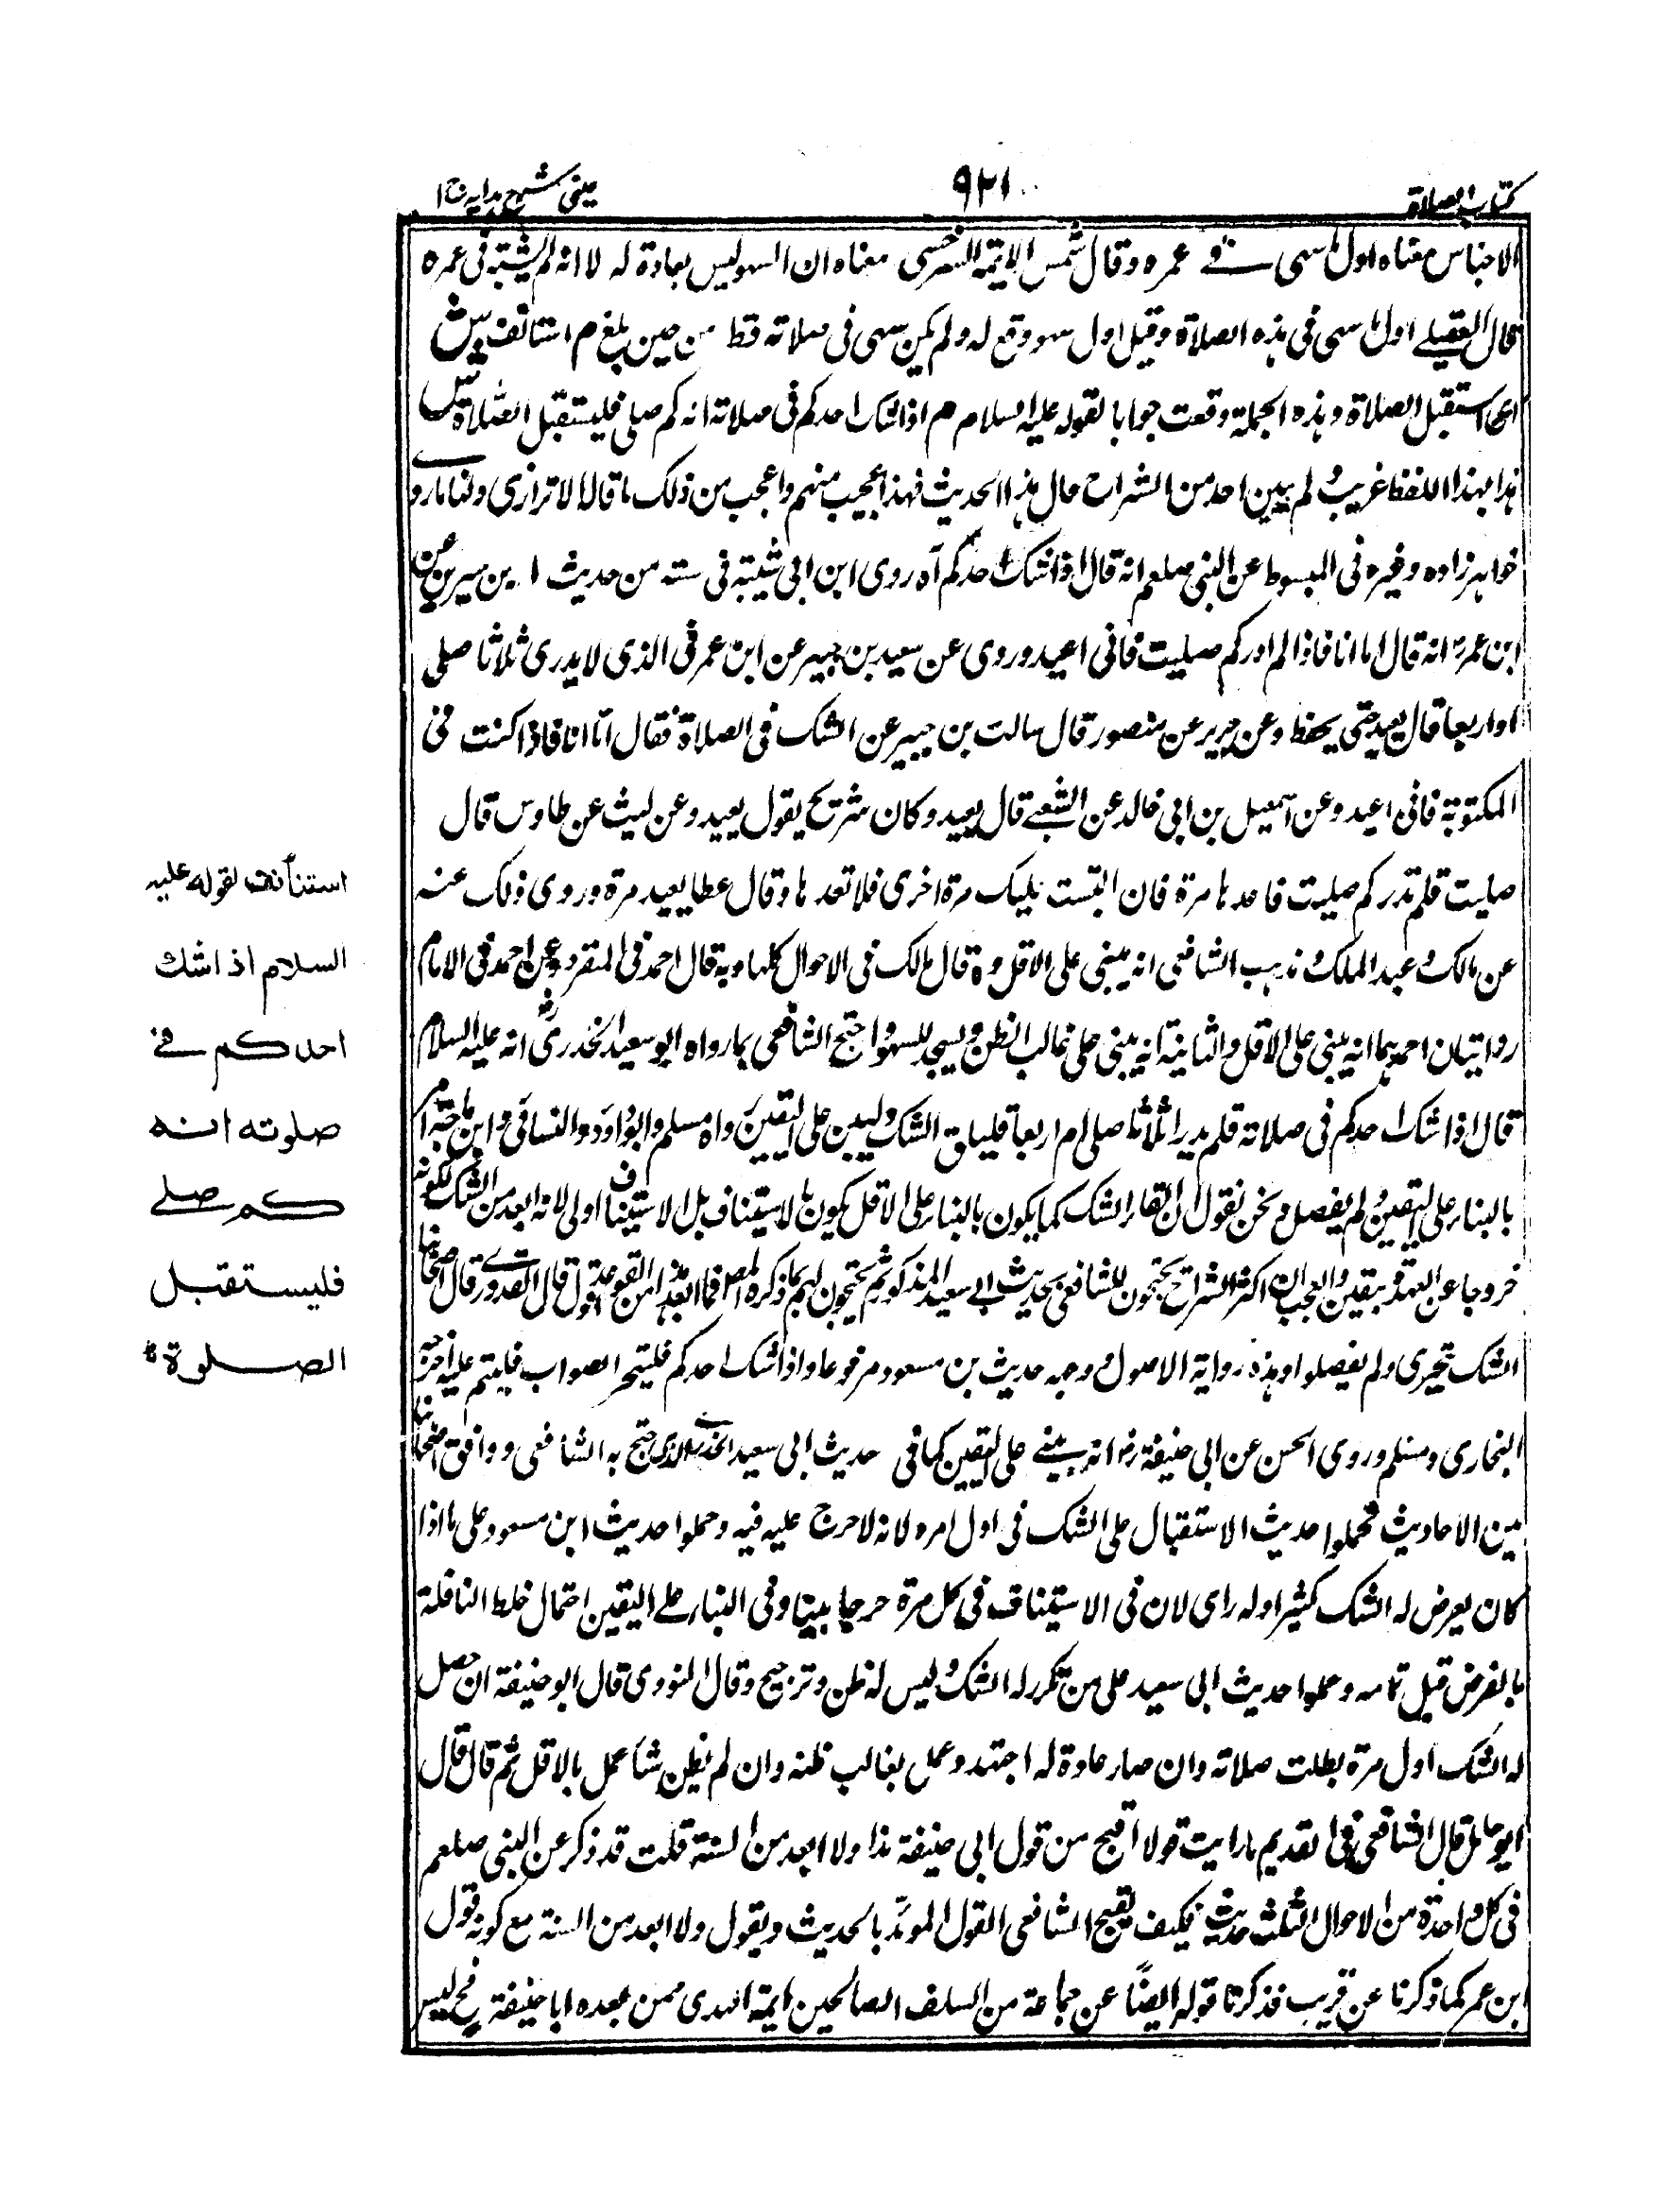 كتاب الصلاة
٩٢١
عينى شرح هدايه ج ١
الاجناس معناه اول ما سهى فى عمره وقال شمس الايمة السرخسى معناه ان السهو ليس بعادة له لا انه لم يشتبه فى عمره
قال العقيلے اول ما سهى فى هذه الصلاة وقيل اول سهو وقع له ولم يكن سهى فى صلاته قط من حين بلغ م استانف ش
اى استقبل الصلاة وهذه الجملة وقعت جوابا لقوله عليه السلام م اذا شك احدكم فى صلاته انه كم صلى فليستقبل الصلاة ش
هذا بهذا اللفظ غريب ولم يبين احد من الشراح حال هذا الحديث فهذا عجيب منهم واعجب من ذلك ما قال الاترازى ولنا ما رو
خواهرزاده وغيره فى المبسوط عن النبى صلعم انه قال اذا شك احدكم آه روى ابن ابى شيبة فى سته من حديث ابن سيرين عن
ابن عمر رض انه قال اما انا فاذا لم ادر كم صليت فانى اعيد وروى عن سعيد بن جبير عن ابن عمر فى الذى لا يدرى ثلاثا صلى
او اربعا قال يعيد حتى يحفظ وعن جرير عن منصور قال سالت بن جبير عن الشك فى الصلاة فقال اما انا فاذا كنت فى
المكتوبة فانى اعيد وعن اسمعيل بن ابى خالد عن الشعبے قال يعيد وكان شريح يقول يعيد وعن ليث عن طاوس قال
صليت فلم تدر كم صليت فاعدها مرة فان التبست عليك مرة اخرى فلا تعدها وقال عطا يعيد مرة وروى ذلك عنه
عن مالك وعبد الملك ومذهب الشافعى انه يبنى على الاقل وة قال مالك فى الاحوال كلها وبه قال احمد فى المنفرد وعن احمد فى الامام
روايتان احدهما انه يبنى على الاقل والثانية انه يبنى على غالب الظن ويسجد للسهو واحتج الشافعى بما رواه ابو سعيد الخدرى رض انه عليه السلام
قال اذا شك احدكم فى صلاته فلم يدر اثلاثا صلى ام اربعا فليلق الشك وليبن على اليقين رواه مسلم وابو داؤد والنسائى وابن ماجة امر
بالبناء على اليقين ولم يفصل ونحن نقول ان القاء الشك كما يكون بالبناء على الاقل يكون بالاستيناف بل الاستيناف اولى لانه ابعد من الشك لكونه
خروجا عن العهدة بيقين والعجب ان اكثر الشراح يحتجون للشافعى بحديث ابى سعيد المذكور ثم يحتجون لهم بما ذكره المص فما ابعد هذا من القواعد اقول قال القدورے قال اصحابنا
الشك يتحرى ولم يفصلوا وهذه رواية الاصول وجه حديث بن مسعود مرفوعا واذا شك احدكم فليتحر الصواب فليتم عليه اخرجه
البخارى ومسلم وروى الحسن عن ابى حنيفة رض انه يبنے على اليقين كما فى حديث ابى سعيد الخدرے الذى احتج به الشافعى ووافق اصحابنا
بين الاحاديث فحملوا حديث الاستقبال على الشك فى اول امره لانه لا حرج عليه فيه وحملوا حديث ابن مسعود على ما اذا
كان يعرض له الشك كثيرا وله راى لان فى الاستيناف فى كل مرة حرجا بينا وفى البناء على اليقين احتمال خلط النافلة
بالفرض قبل تمامه وحملوا حديث ابى سعيد على من تكرر له الشك وليس له ظن وترجيح وقال النووى قال ابو حنيفة ان حصل
له الشك اول مرة بطلت صلاته وان صار عادة له اجتهد وعمل بغالب ظنه وان لم يظن شيا عمل بالاقل ثم قال قال
ابو حامد قال الشافعى فى القديم ما رايت قولا اقبح من قول ابى حنيفة هذا ولا ابعد من السنة قلت قد ذكر عن النبى صلعم
فى كل واحدة من الاحوال الثلث حديث فكيف يقبح الشافعى القول المؤيد بالحديث ويقول ولا ابعد من السنة مع كونه قول
ابن عمر كما ذكرنا عن قريب فذكرنا قوله ايضًا عن جماعة من السلف الصالحين ايمة الهدى ممن بعده ابا حنيفة رح ليس
استنأنف لقوله عليه
السلام اذا شك
احدكم فے
صلوته انه
كم صلے
فليستقبل
الصلوة